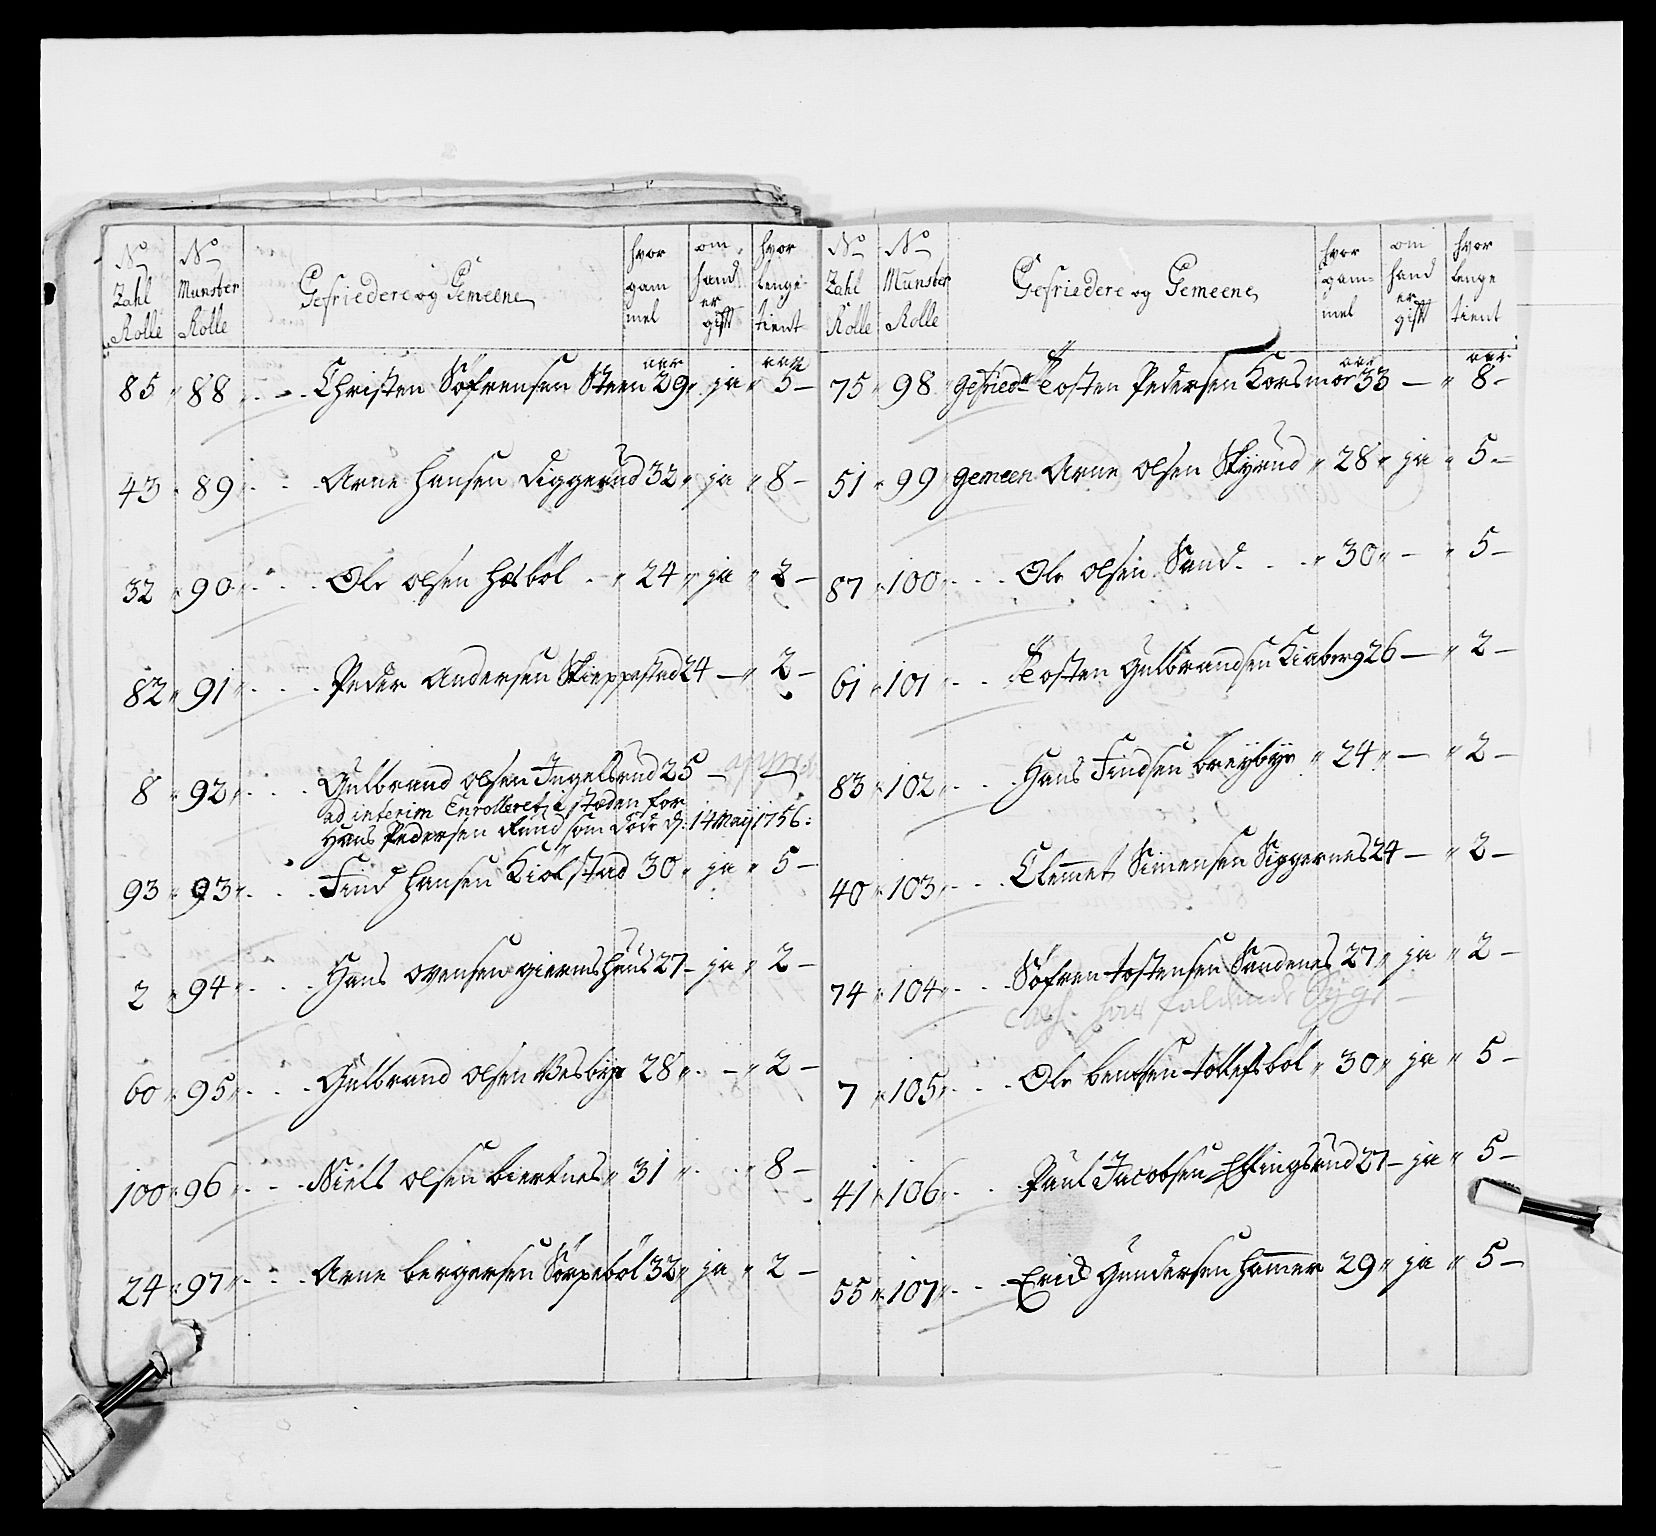 No Zahl Rolle | No Munster Rolle | Gefriedere og Gemeene | hvor gam mel | om hand er gift | hvor lenge tient
85 " 88 " - - Christen Söfrensen Steen aar 29 " ja " aar 5 -
43 " 89 " - - Arne Hansen Diggerud 32 " ja " 8 -
32 " 90 " - - Ole Olsen Hosböl - " 24 " ja " 2 -
82 " 91 " - - Peder Andersen Skieppestad 24 - " 2 -
8 " 92 " - - Gulbrand Olsen Ingelsrud 25 - -
ad interim Enrolleret i stæden for
Hans Pedersen Rund som döde d: 14 May 1756:
93 " 93 " - - Find Hansen Kiölstad 30 " ja " 5 -
2 " 94 " - - Hans Ovensen Giermshuus 27 - ja " 2 -
60 " 95 " - - Gulbrand Olsen Besbye 28 " - " 2 -
100 " 96 " - - Niels Olsen Biertnes " 31 " - " 8 -
24 " 97 " - - Arne Bergersen Sörpeböl 32 " ja " 2 -
No Zahl Rolle | No Munster Rolle | Gefriedere og Gemeene | hvor gam= mel | om hand er gift | hvor lenge tient
75 " 98 Gefriedr Tosten Pedersen Korsmoe aar 33 - " aar 8 -
51 " 99 Gemeen Arne Olsen Skyrud " 28 " ja " 5 -
87 " 100 " - - Ole Olsen Sand - - " 30 " - " 5 -
61 " 101 " - - Tosten Gulbrandsen Kiaberg 26 - " 2 -
83 " 102 " - - Hans Findsen Breybye " 24 " - " 2 -
40 " 103 " - - Clemmet Simensen Siggernes 24 - " 2 -
74 " 104 " - - Söfren Tostensen Sandenes 27 " ja " 2 -
7 " 105 " - - Ole Bentsen Tollefsböl " 30 " ja " 5 -
41 " 106 " - - Paul Jacobsen Efflingsrud 27 - ja " 5 -
55 " 107 " - - Erick Gundersen Hammer 29 " ja " 5 -